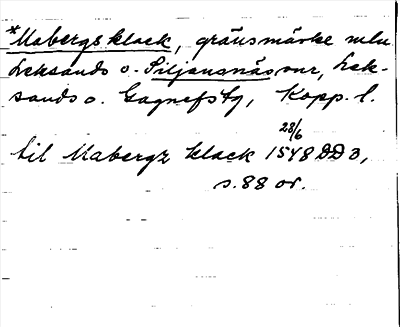 *Mabergs klack, gränsmärke mln
Leksands o. Siljansnäs snr, Lek-
sands o. Gagnefs tg, Kopp. l.
28/6
til Mabergz klack 1548 DD 3,
s. 88 or.